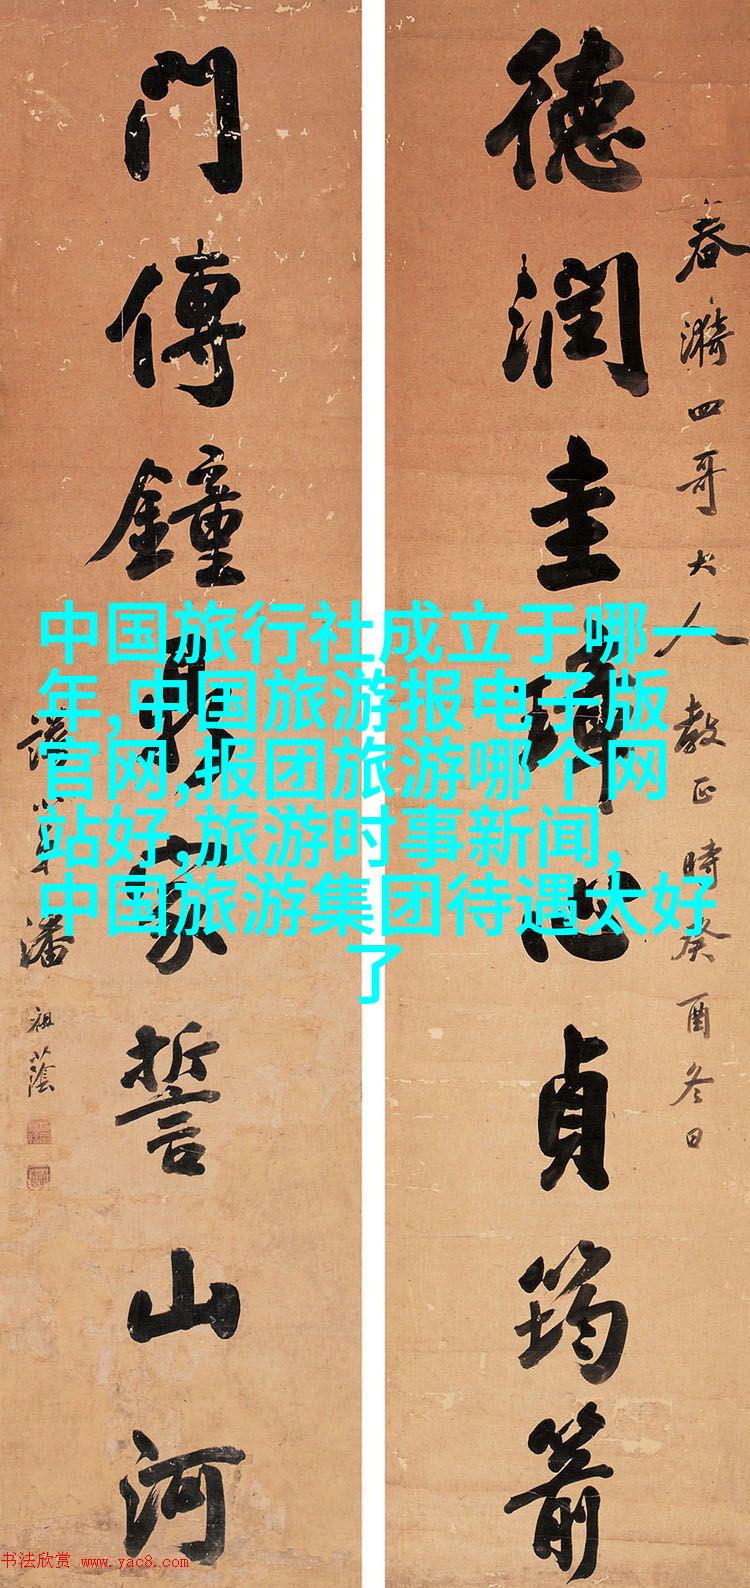 春漪四哥大人教正時癸酉冬日
德潤圭璋心貞筠箭
門傳鐘鼎家誓山河
誼小弟潘祖蔭
中国旅行社成立于哪一
年,中国旅游报电子版
官网,报团旅游哪个网
站好,旅游时事新闻,
中国旅游集团待遇太好
了
书法欣赏 www.yac8.com